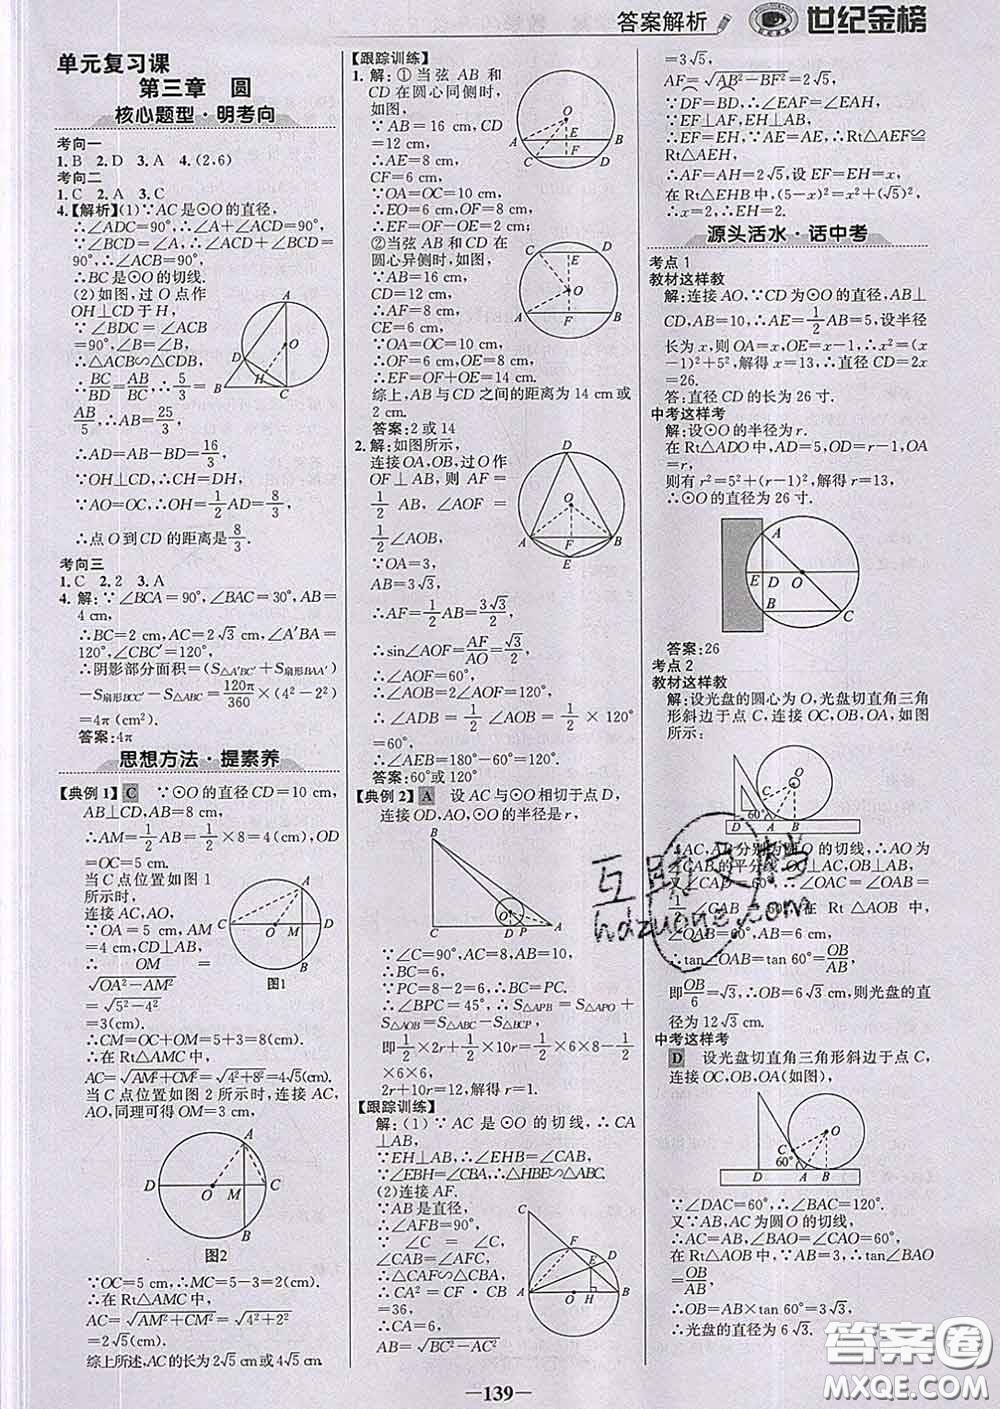 答案解析
世纪金榜
单元复习课
第三章 圆
核心题型·明考向
考向一
1.B 2.D 3.A 4.(2,6)
考向二
1.C 2.A 3.C
4.【解析】(1)∵AC是⊙O的直径,
∴∠ADC=90°,∴∠A+∠ACD=90°.
∵∠BCD=∠A,∴∠ACD+∠BCD
=90°,∴∠ACB=90°,
∴BC是⊙O的切线.
(2)如图,过O点作
OH⊥CD于H,
∵∠BDC=∠ACB
=90°,∠B=∠B,
∴△ACB∽△CDB,
∴BC/BD=AB/BC,∴5/3=
AB/5,∴AB=25/3,
∴AD=AB-BD=16/3,
∵OH⊥CD,∴CH=DH,
∵AO=CO,∴OH=1/2AD=8/3,
∴点O到CD的距离是8/3.
考向三
1.C 2.2 3.A
4.解:∵∠BCA=90°,∠BAC=30°,AB=
4 cm,
∴BC=2 cm,AC=2√3 cm,∠A′BA=
120°,∠CBC′=120°,
∴阴影部分面积=(S△A′BC′+S扇形BAA′)
-S扇形BCC′-S△ABC=120π/360×(4²-2²)
=4π(cm²).
答案:4π
思想方法·提素养
【典例1】C ∵⊙O的直径CD=10 cm,
AB⊥CD,AB=8 cm,
∴AM=1/2AB=1/2×8=4(cm),OD
=OC=5 cm.
当C点位置如图1
所示时,
连接AC,AO,
∵OA=5 cm,AM=
4 cm,CD⊥AB,
∴OM=
√OA²-AM²
=√5²-4²
=3(cm)
图1
∴CM=OC+OM=5+3=8(cm).
∴在Rt△AMC中,
AC=√AM²+CM²=√4²+8²=4√5(cm).
当C点位置如图2所示时,连接AC,
AO,同理可得OM=3 cm,
图2
∵OC=5 cm,∴MC=5-3=2(cm).
∴在Rt△AMC中,
AC=√AM²+CM²=√4²+2²
=2√5(cm).
综上所述,AC的长为2√5 cm或4√5 cm.
【跟踪训练】
1.解:①当弦AB和
CD在圆心同侧时,
如图,
∵AB=16 cm,CD
=12 cm,
∴AE=8 cm,
CF=6 cm,
∵OA=OC=10 cm,
∴EO=6 cm,OF=8 cm,
∴EF=OF-OE=2 cm;
②当弦AB和CD在
圆心异侧时,如图,
∵AB=16 cm,CD
=12 cm,
∴AF=8 cm,
CE=6 cm,
∵OA=OC=10 cm,
∴OF=6 cm,OE=8 cm,
∴EF=OF+OE=14 cm.
综上,AB与CD之间的距离为14 cm或
2 cm.
答案:2或14
2.解:如图所示,
连接OA,OB,过O作
OF⊥AB,则AF=
1/2AB,∠AOF=
1/2∠AOB,
∵OA=3,
AB=3√3,
∴AF=1/2AB=3√3/2,
∴sin∠AOF=AF/AO=√3/2,
∴∠AOF=60°,
∴∠AOB=2∠AOF=120°,
∴∠ADB=1/2∠AOB=1/2×120°
=60°,
∴∠AEB=180°-60°=120°.
答案:60°或120°
【典例2】A 设AC与⊙O相切于点D,
连接OD,AO,⊙O的半径是r,
∵∠C=90°,AC=8,AB=10,
∴BC=6,
∵PC=8-2=6,∴BC=PC.
∴∠BPC=45°,∴S△APB=S△APO+
S△AOB=S△ABC-S△BCP,
即1/2×2r+1/2×10r=1/2×6×8-1/2
×6×6,
2r+10r=12,解得r=1.
【跟踪训练】
解:(1)∵AC是⊙O的切线,∴CA
⊥AB,
∵EH⊥AB,∴∠EHB=∠CAB,
∵∠EBH=∠CBA,∴△HBE∽△ABC.
(2)连接AF.
∵AB是直径,
∴∠AFB=90°,
∵∠C=∠C,
∠CAB=∠AFC,
∴△CAF∽△CBA,
∴CA²=CF·CB
=36,
∴CA=6,
AB=√BC²-AC²
=3√5,
AF=√AB²-BF²=2√5,
∵DF=BD,∴∠EAF=∠EAH,
∵EF⊥AF,EH⊥AB,
∴EF=EH,∵AE=AE,∴Rt△AEF≌
Rt△AEH,
∴AF=AH=2√5,设EF=EH=x,
在Rt△EHB中,(5-x)²=x²+(√5)²,
∴x=2,∴EH=2.
源头活水·话中考
考点1
教材这样教
解:连接AO,∵CD为⊙O的直径,AB⊥
CD,AB=10,∴AE=1/2AB=5,设半径
长为x,则OA=x,OE=x-1,∴x²=(x-
1)²+5²,解得x=13,∴直径CD=2x
=26.
答:直径CD的长为26寸.
中考这样考
解:设⊙O的半径为r.
在Rt△ADO中,AD=5,OD=r-1,OA
=r,
则有r²=5²+(r-1)²,解得r=13,
∴⊙O的直径为26寸.
答案:26
考点2
教材这样教
解:设光盘的圆心为O,光盘切直角三角
形斜边于点C,连接OC,OB,OA,如图
所示:
∴AC,AB分别为圆O的切线,∴AO为
∠CAB的平分线,OC⊥AC,OB⊥AB,
又∠CAD=60°,∴∠OAC=∠OAB=
1/2∠CAB=60°,在Rt△AOB中,
∠OAB=60°,AB=6 cm,
∴tan∠OAB=tan60°=OB/AB,
即OB/6=√3,∴OB=6√3 cm,则光盘的直
径为12√3 cm.
中考这样考
D 设光盘切直角三角形斜边于点C,
连接OC,OB,OA(如图),
∵∠DAC=60°,∴∠BAC=120°.
又∵AB,AC为圆O的切线,
∴AC=AB,∠BAO=∠CAO=60°,
在Rt△AOB中,∵AB=3,∴tan∠BAO
=OB/AB,
∴OB=AB×tan 60°=3√3,
∴光盘的直径为6√3.
—139—
答案圈
MXQE.COM
hdzuoye.com